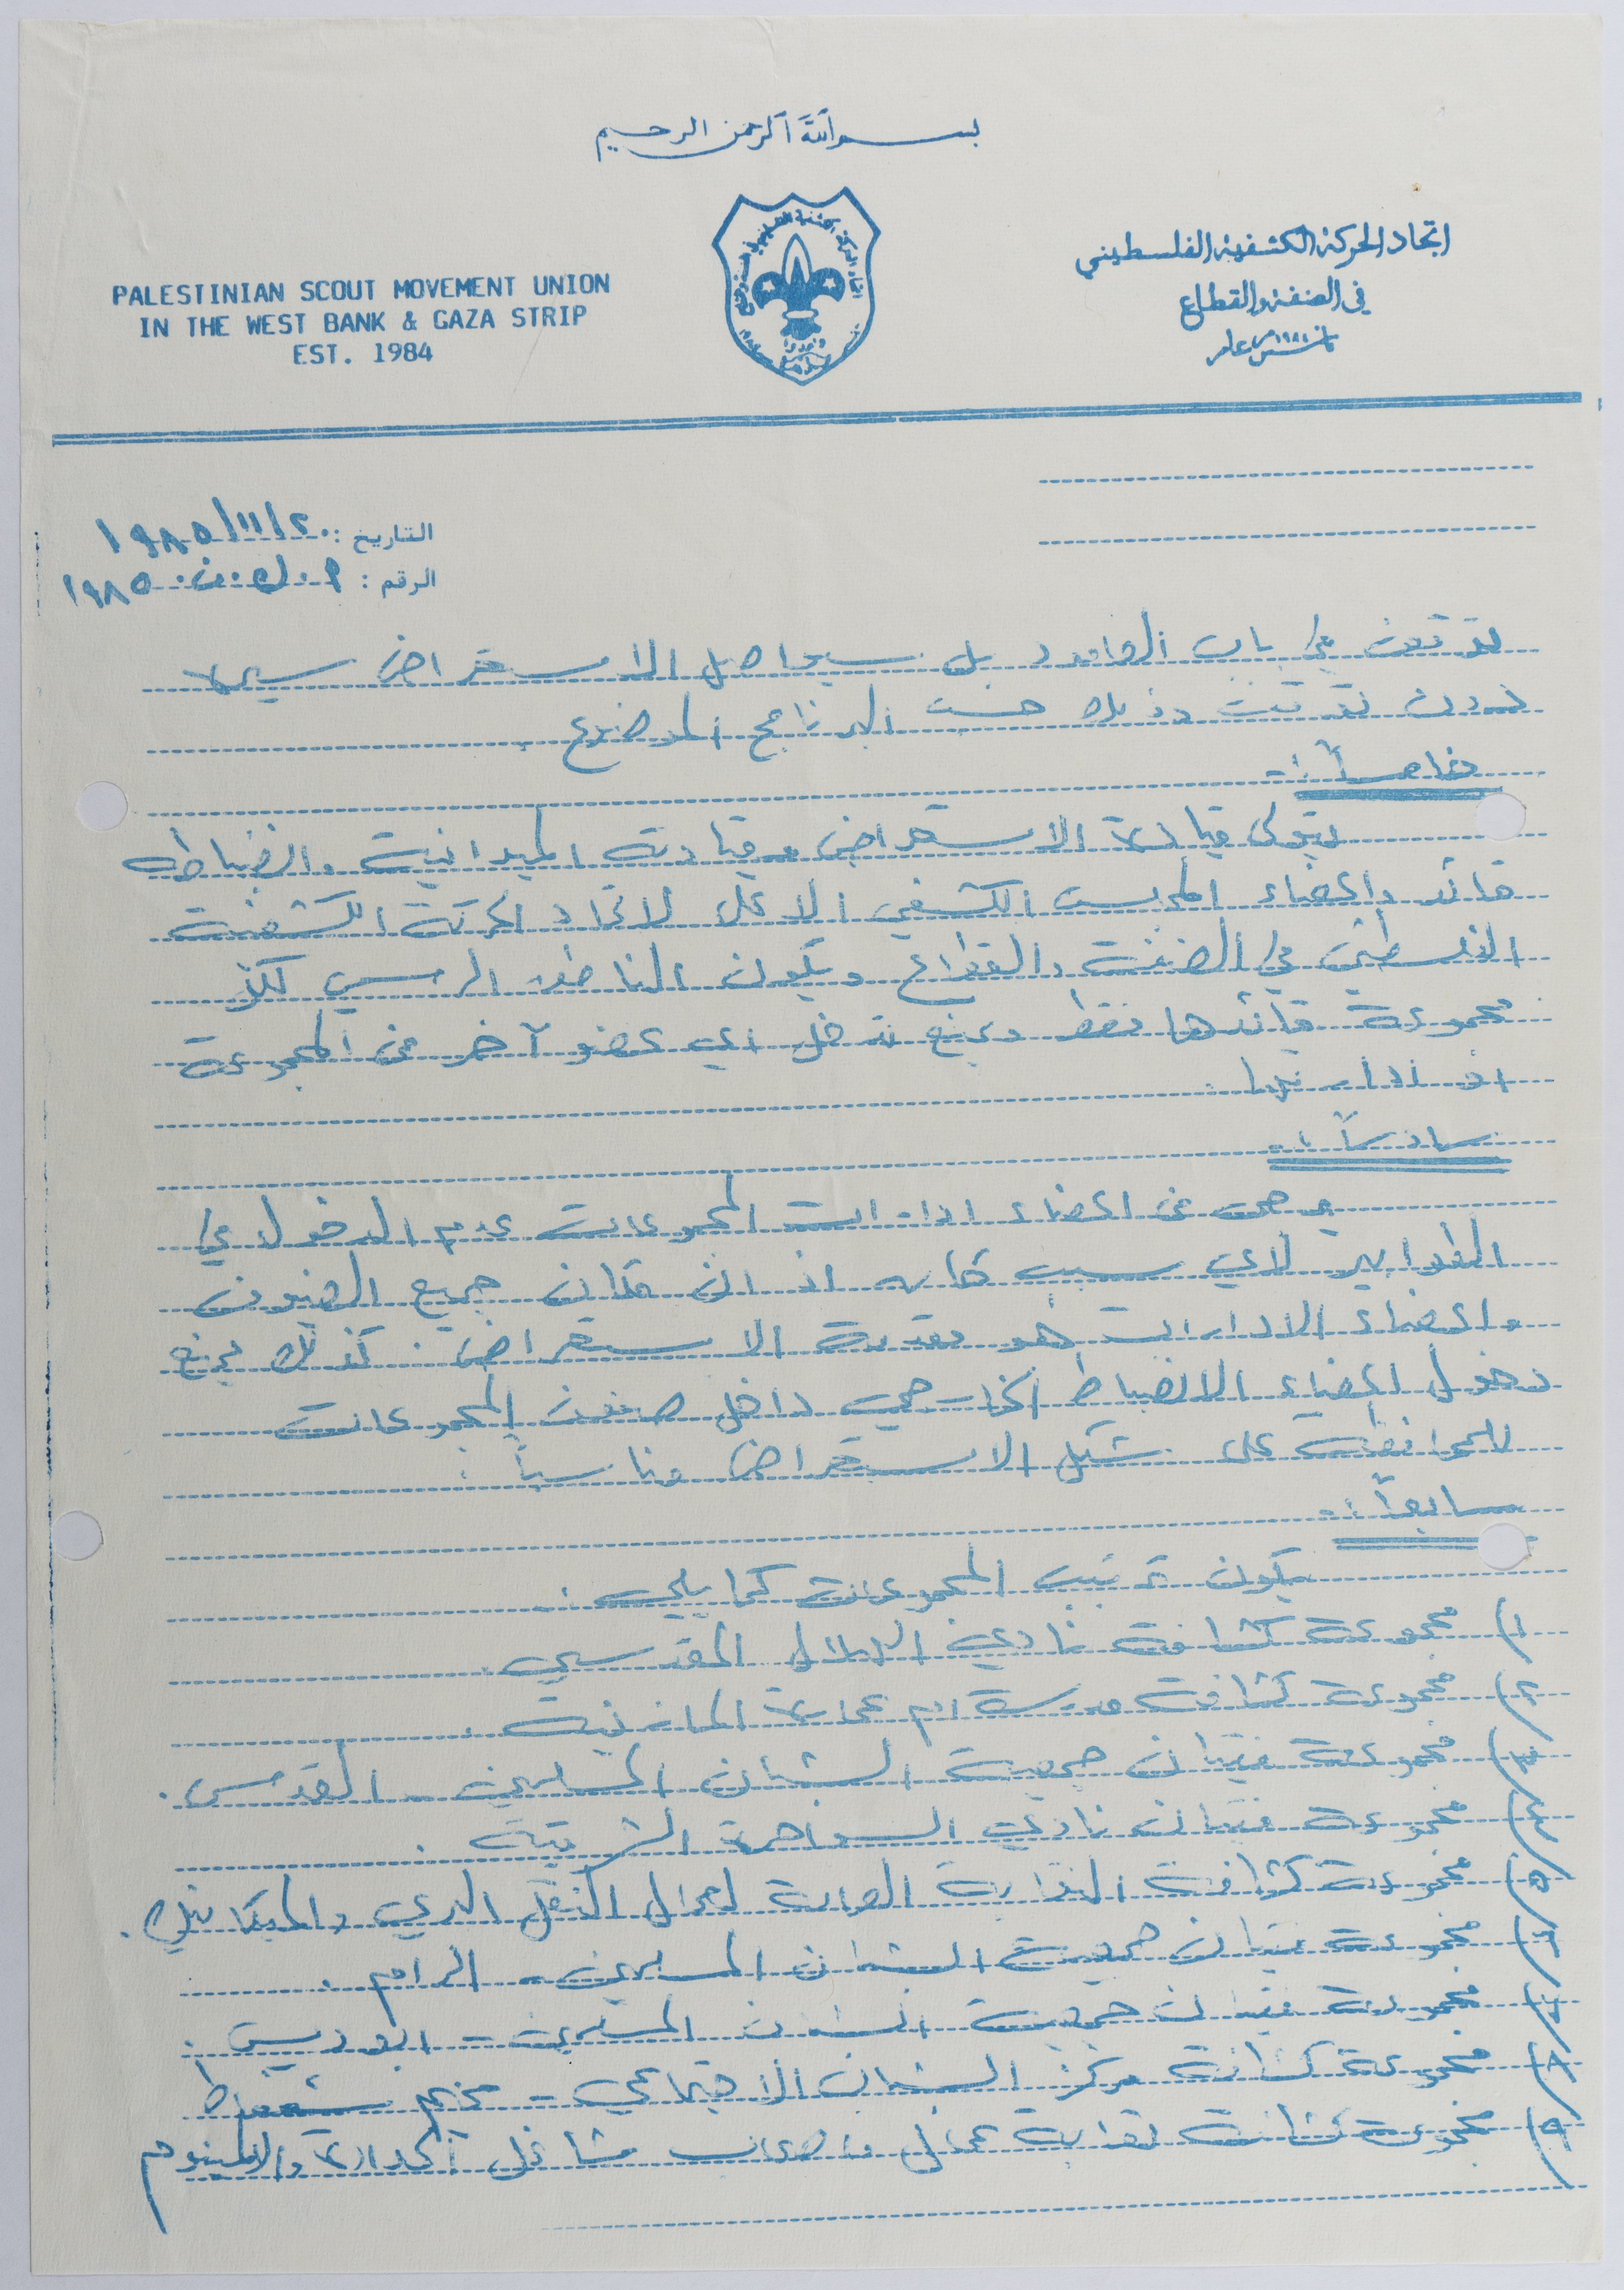 بسم الله الرحمن الرحيم
PALESTINIAN SCOUT MOVEMENT UNION
IN THE WEST BANK & GAZA STRIP
EST. 1984
اتحاد الحركة الكشفية الفلسطيني
في الضفة والقطاع
تأسس عام
التاريخ : ٢٠/١١/١٩٨٥
الرقم : ١٩٨٥
في باب العامود بل سيواصل الاستعراض سيره
بدون توقف وذلك حسب البرنامج الموضوع .
خامساً :-
يتولى قيادة الاستعراض وقيادته الميدانية وانضباطه
قائد واعضاء المجلس الكشفي الاعلى لاتحاد الحركة الكشفية
الفلسطيني في الضفة والقطاع ويكون الناطق الرسمي لكل
مجموعة قائدها فقط ويمنع تدخل اي عضو آخر من المجموعة
او ادارتها .
سادساً :-
يرجى من اعضاء ادارات المجموعات عدم الدخول في
الطوابير لاي سبب كان اذ ان مكان جميع الضيوف
واعضاء الادارات هو مقدمة الاستعراض . كذلك يمنع
دخول اعضاء الانضباط الخارجي داخل صفوف المجموعات
للمحافظة على شكل الاستعراض مناسباً .
سابعاً :-
يكون ترتيب المجموعات كما يلي :
١) مجموعة كشافة نادي الهلال المقدسي .
٢) مجموعة كشافة مدرسة ام عمارة المازنية .
٣) مجموعة فتيان جمعية الشبان المسلمين - القدس .
٤) مجموعة فتيان نادي السواهرة الشرقية .
٥) مجموعة كشافة النقابة العامة لعمال النقل البري والميكانيك .
٦) مجموعة فتيان جمعية الشبان المسلمين - الرام .
٧) مجموعة فتيان جمعية الشبان المسلمين - ابوديس .
٨) مجموعة كشافة مركز الشباب الاجتماعي - مخيم شعفاط
٩) مجموعة كشافة نقابة عمال واصحاب مشاغل الحدادة والالمنيوم